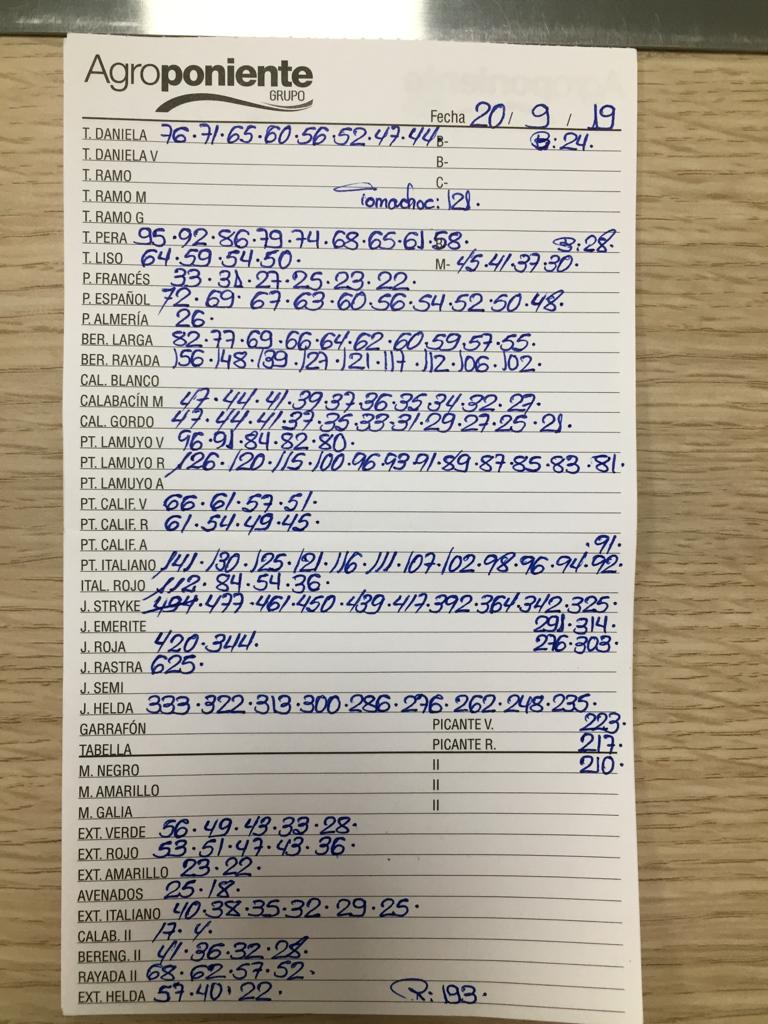 Agroponiente
GRUPO
Fecha 20 / 9 / 19
T. DANIELA 76·71·65·60·56·52·47·44 B- B:24.
T. DANIELA V B-
T. RAMO C-
T. RAMO M Tomachoc: 121.
T. RAMO G
T. PERA 95·92·86·79·74·68·65·61·58· B:28·
T. LISO 64·59·54·50· M- 45·41·37·30·
P. FRANCÉS 33·31·27·25·23·22·
P. ESPAÑOL 72·69·67·63·60·56·54·52·50·48·
P. ALMERÍA 26·
BER. LARGA 82·77·69·66·64·62·60·59·57·55·
BER. RAYADA 156·148·139·127·121·117·112·106·102·
CAL. BLANCO
CALABACÍN M 47·44·41·39·37·36·35·34·32·27·
CAL. GORDO 47·44·41·37·35·33·31·29·27·25·21·
PT. LAMUYO V 96·91·84·82·80·
PT. LAMUYO R 126·120·115·100·96·93·91·89·87·85·83·81·
PT. LAMUYO A
PT. CALIF. V 66·61·57·51·
PT. CALIF. R 61·54·49·45·
PT. CALIF. A ·91·
PT. ITALIANO 141·130·125·121·116·111·107·102·98·96·94·92·
ITAL. ROJO 112·84·54·36·
J. STRYKE 494·477·461·450·439·417·392·364·342·325·
J. EMERITE 291·314·
J. ROJA 420·344· 276·303·
J. RASTRA 625·
J. SEMI
J. HELDA 333·322·313·300·286·276·262·248·235·
GARRAFÓN PICANTE V. 223·
TABELLA PICANTE R. 217·
M. NEGRO II 210·
M. AMARILLO II
M. GALIA II
EXT. VERDE 56·49·43·33·28·
EXT. ROJO 53·51·47·43·36·
EXT. AMARILLO 23·22·
AVENADOS 25·18·
EXT. ITALIANO 40·38·35·32·29·25·
CALAB. II 17·4·
BERENG. II 41·36·32·28·
RAYADA II 68·62·57·52·
EXT. HELDA 57·40·22· R:193·